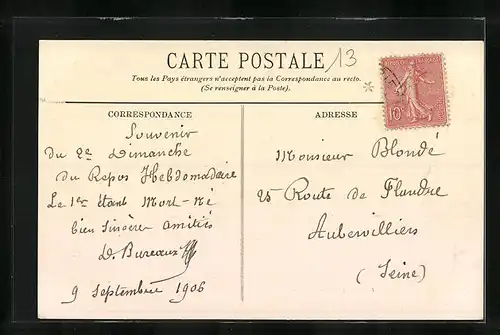 CARTE POSTALE
13
Tous les Pays étrangers n'acceptent pas la Correspondance au recto.
(Se renseigner à la Poste).
10c
CORRESPONDANCE
Souvenir
Du 2e Dimanche
du Repos Hebdomadaire
Le 1er étant Mort-Né
bien sincère amitiés
D. Bureaux
9 Septembre 1906
ADRESSE
Monsieur Blondé
25 Route de Flandre
Aubervilliers
(Seine)